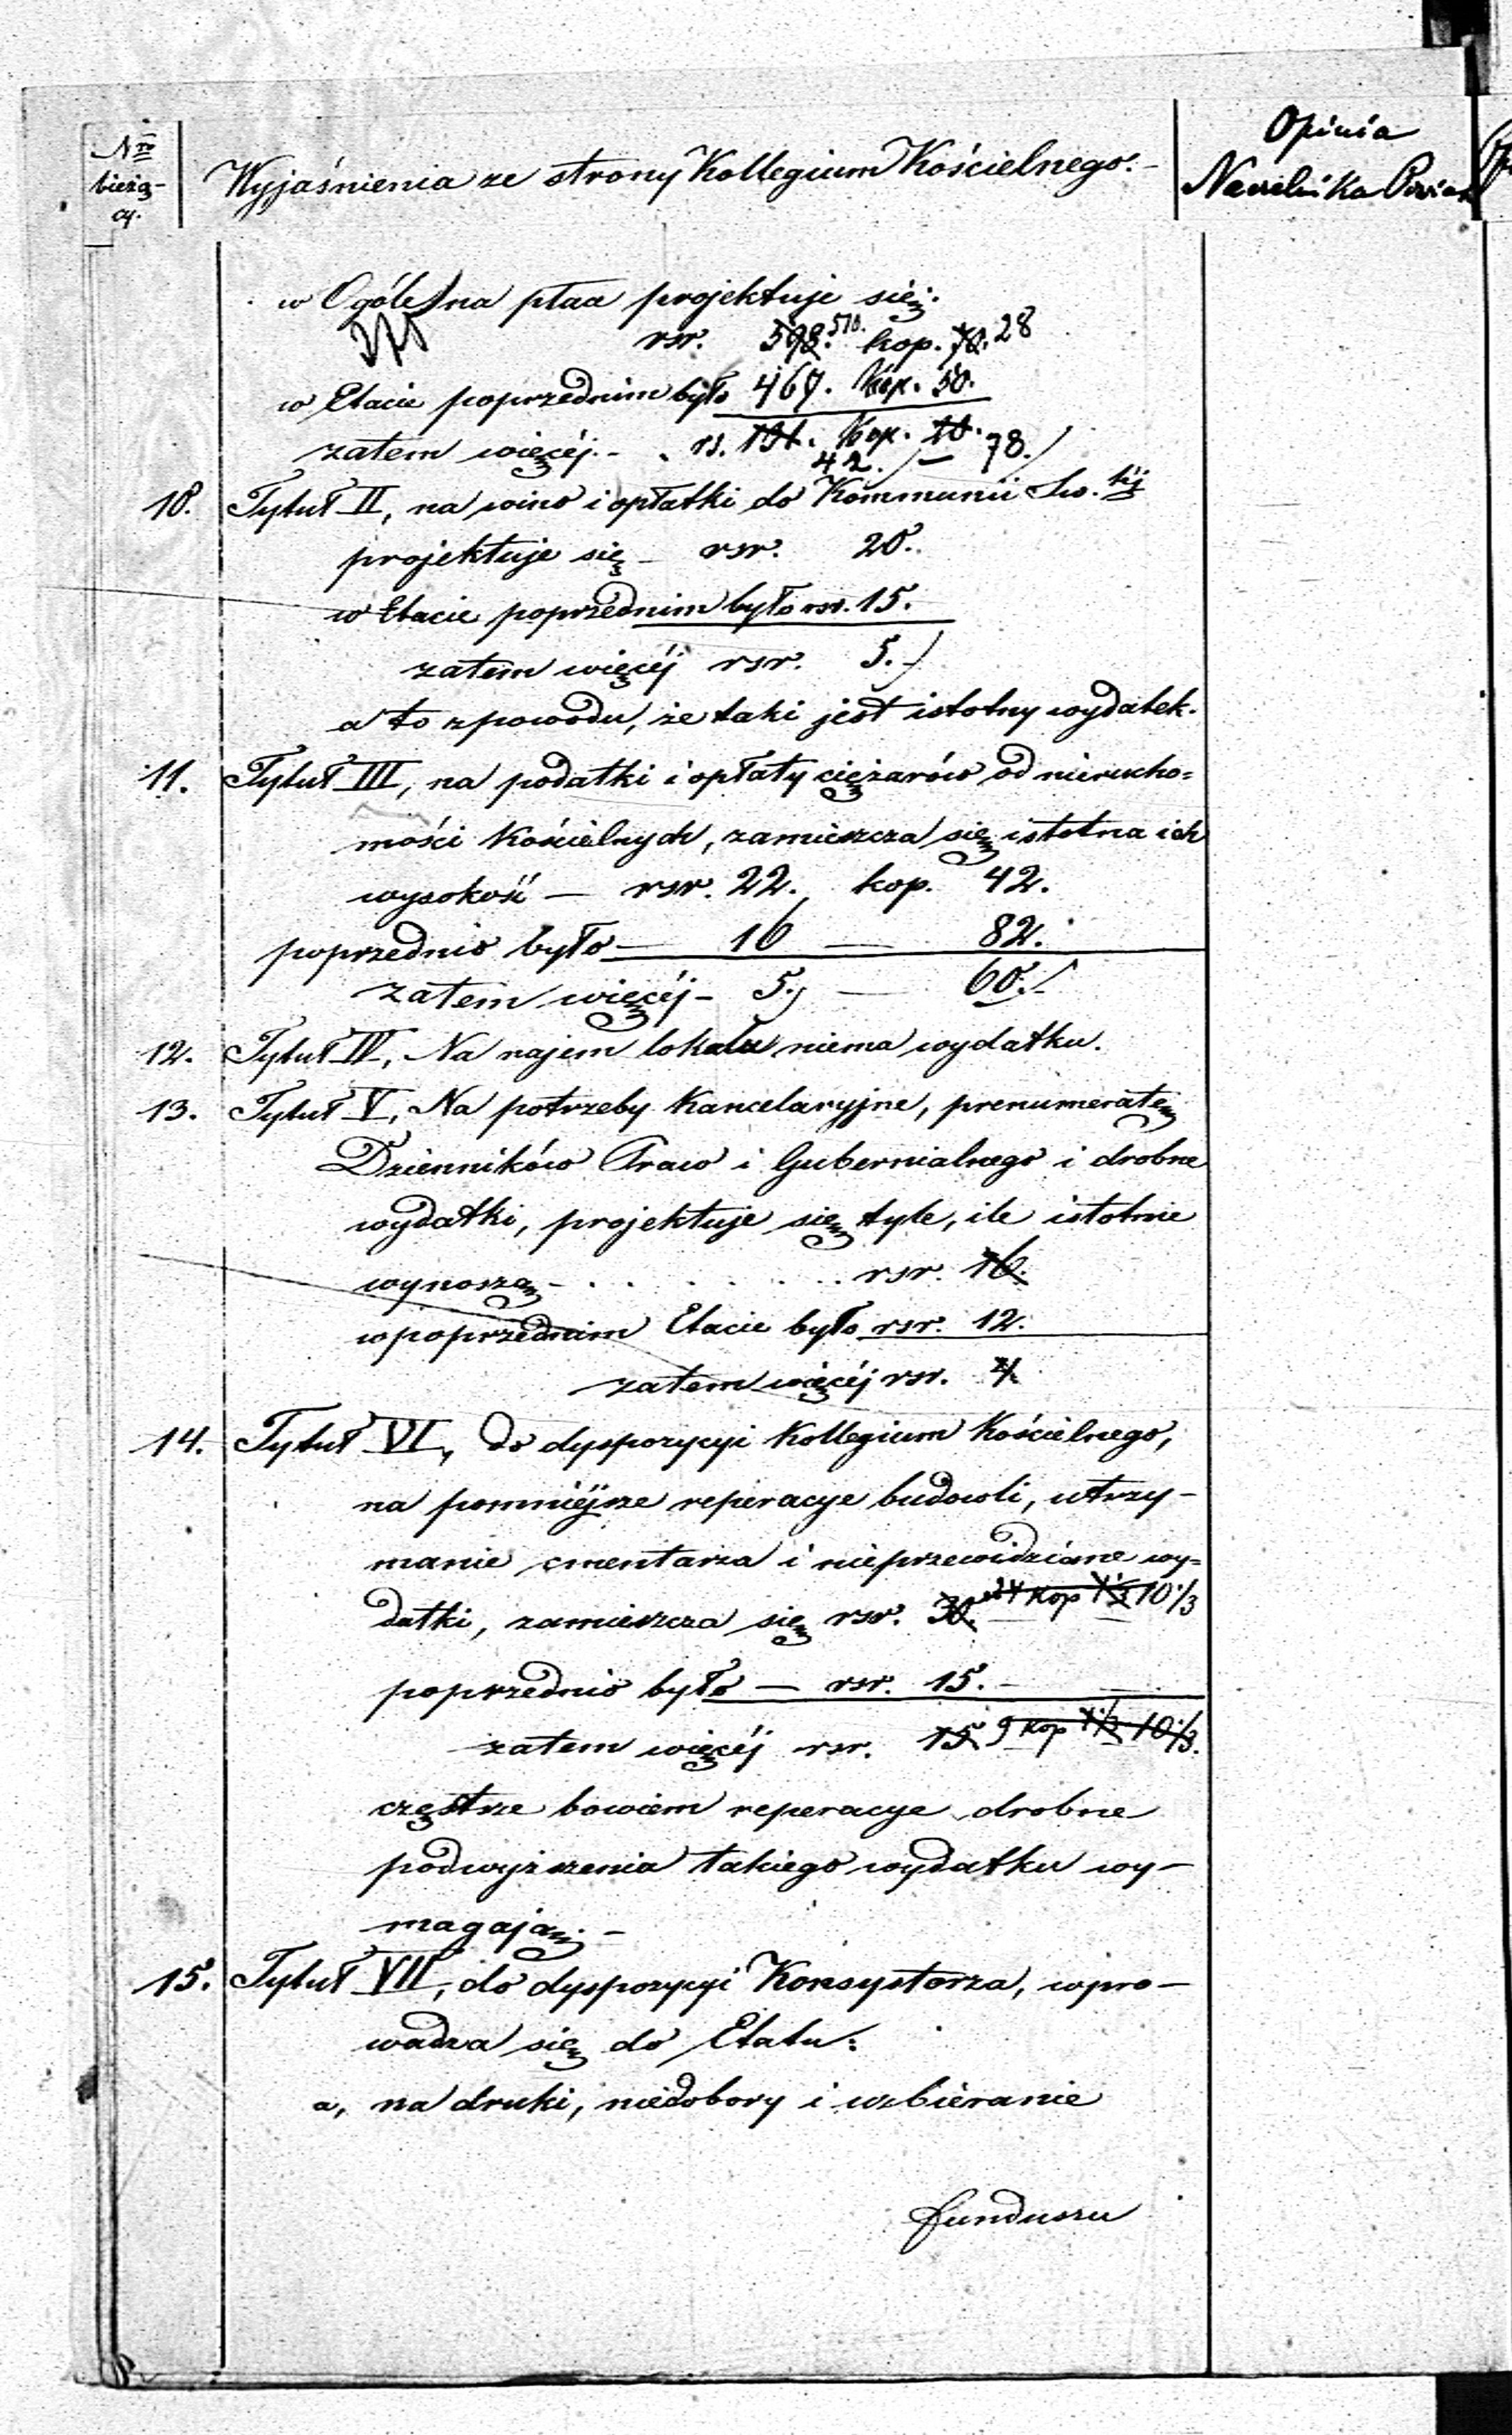 Nro
bieżą-
cy.
Wyjaśnienia ze strony Kollegium Kościelnego.-
Opinia
Naczelnika Powia
w Ogóle na płaa projektuje się:
rsr. 598. 510. kop. 70. 28
w Etacie poprzednim było 467. kop. 50.
zatem więcej.- rs. 131. kop. 20.
42. — 78.
10. Tytuł II, na wino i opłatki do Kommunii Św. téj
projektuje się — rsr. 20.
w Etacie poprzednim było rsr. 15.
zatem więcéj rsr. 5.
a to z powodu, że taki jest istotny wydatek.
11. Tytuł III, na podatki i opłaty ciężarów od nierucho=
mości Kościelnych, zamieszcza się istotna ich
wysokość — rsr. 22. kop. 42.
poprzednio było — 16 — 82.
zatem więcéj - 5. — 60.
12. Tytuł IV, Na najem lokalu niema wydatku.
13. Tytuł V, Na potrzeby Kancelaryjne, prenumeratę
Dzienników Praw i Gubernialnego i drobne
wydatki, projektuje się tyle, ile istotnie
wynoszą - . . . . . . rsr. 16.
w poprzednim Etacie było rsr. 12.
zatem więcéj rsr. 4
14. Tytuł VI, do dyspozycyi Kollegium Kościelnego,
na pomniéjsze reperacye budowli, utrzy-
manie cmentarza i nieprzewidziane wy=
datki, zamieszcza się rsr. 30. 24 kop 10 1/3
poprzednio było — rsr. 15. -
zatem więcéj rsr. 15 9 kop 10 1/3.
częstsze bowiem reperacye drobne
podwyższenia takiego wydatku wy-
magają. -
15. Tytuł VII, do dyspozycyi Konsystorza, wpro-
wadza się do Etatu:
a, na druki, niedobory i uzbieranie
funduszu